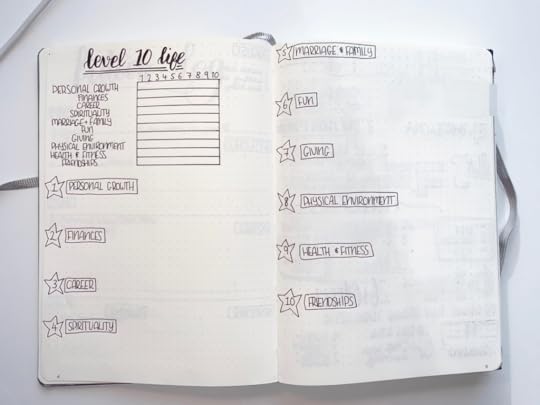 level 10 life
1 2 3 4 5 6 7 8 9 10
PERSONAL GROWTH
FINANCES
CAREER
SPIRITUALITY
MARRIAGE + FAMILY
FUN
GIVING
PHYSICAL ENVIRONMENT
HEALTH & FITNESS
FRIENDSHIPS
1 PERSONAL GROWTH
2 FINANCES
3 CAREER
4 SPIRITUALITY
5 MARRIAGE & FAMILY
6 FUN
7 GIVING
8 PHYSICAL ENVIRONMENT
9 HEALTH & FITNESS
10 FRIENDSHIPS